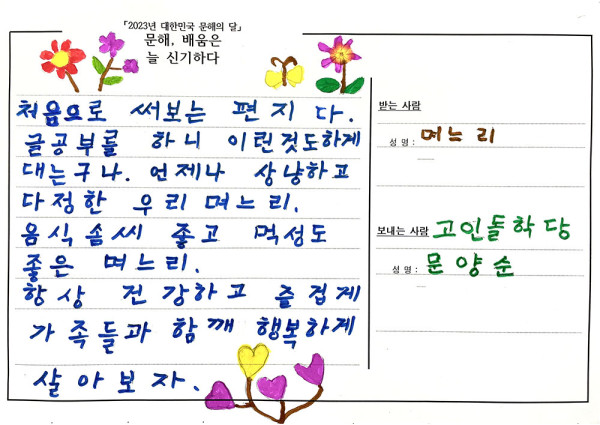 「2023년 대한민국 문해의 달」
문해, 배움은
늘 신기하다
처음으로 써보는 편지다.
글공부를 하니 이런것도하게
대는구나. 언제나 상냥하고
다정한 우리 며느리.
음식솜씨 좋고 먹성도
좋은 며느리.
항상 건강하고 즐겁게
가족들과 함깨 행복하게
살아보자.
받는 사람
성 명 : 며느리
보내는 사람 고인돌학당
성 명 : 문양순